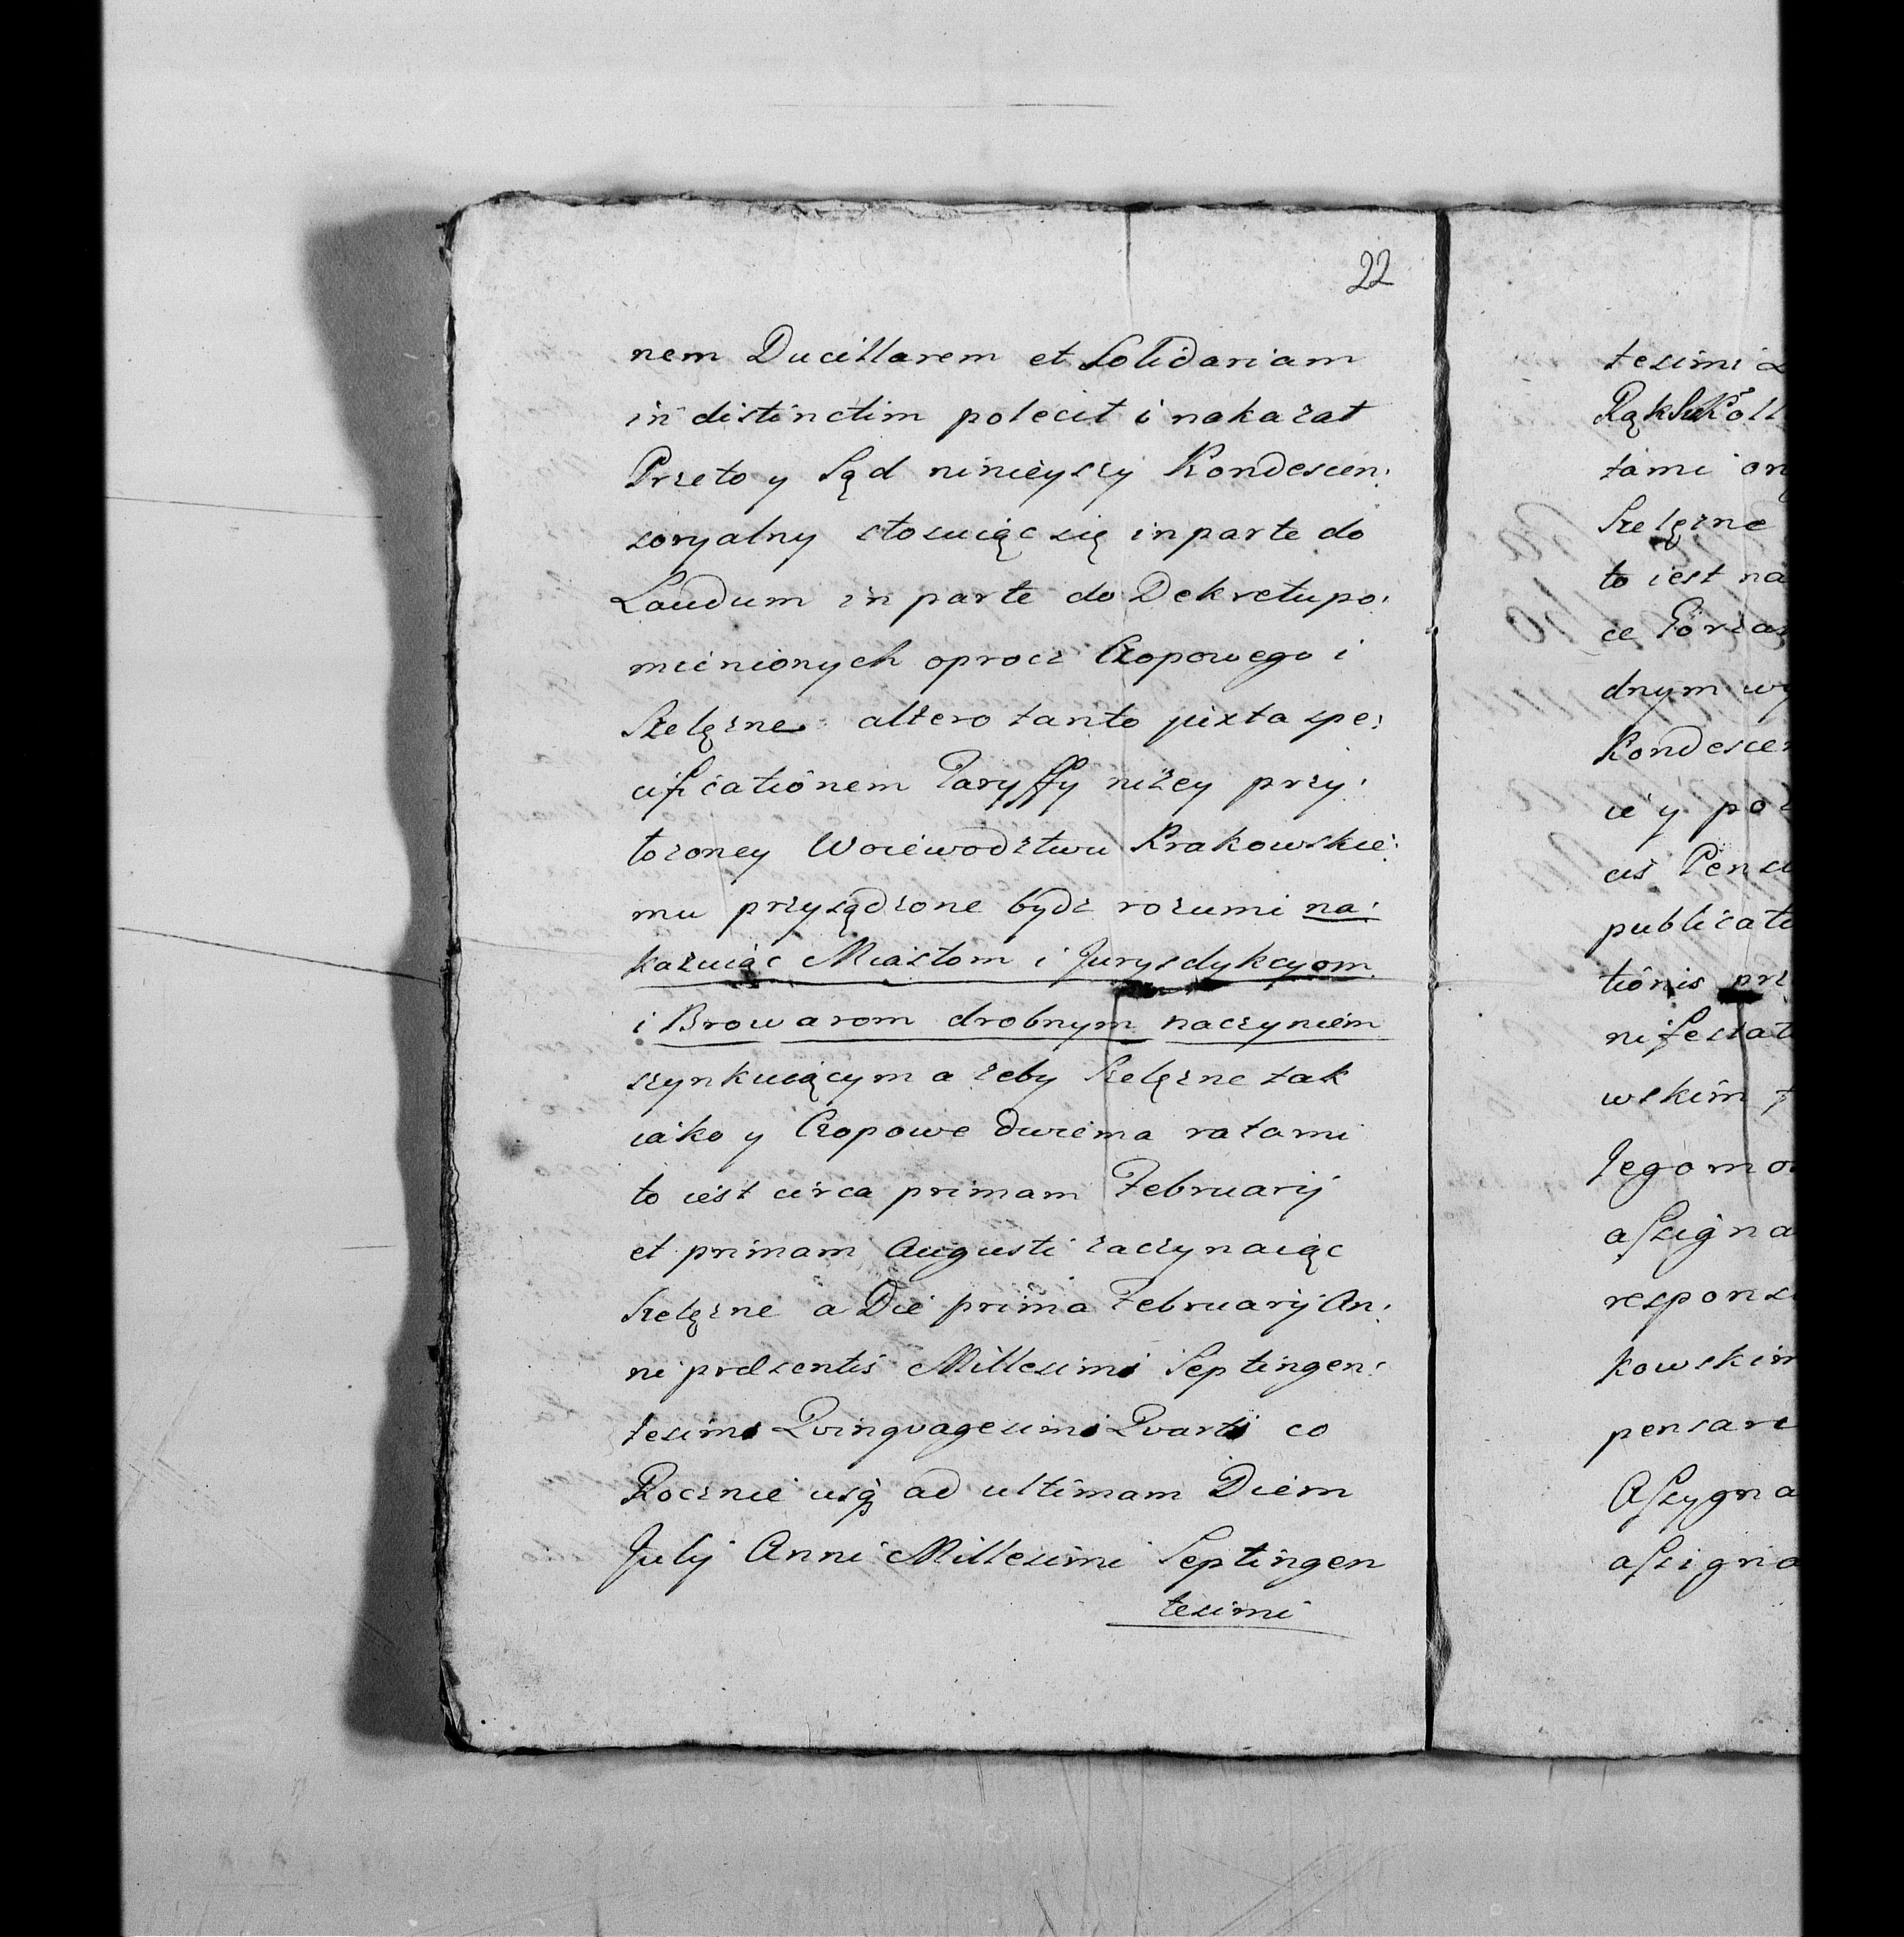 22
nem Ducillarem et Solidariam
in distinctim polecił i nakazał
Przeto y Sąd ninieyszy Kondescen:
soryalny stosuiąc się in parte do
Laudum in parte do Dekretu po:
mienionych oprocz Czopowego i
Szelęzne altero tanto juxta spe:
cificationem Taryffy niżey przy:
łożoney Woiewodztwu Krakowskie:
mu przysądzone bydz rozumi na:
kazuiąc Miastom i Jurysdykcyom
i Browarom drobnym naczyniem
szynkuiącym a żeby Szelęzne tak
iako y Czopowe dwiema ratami
to iest circa primam Februarij
et primam Augusti zaczynaiąc
Szelęzne a Die prima Februarij An:
ni præsentis Millesimi Septingen:
tesimi Qvinqvagesimi Qvarti co
Rocznie usq ad ultimam Diem
Julij Anni Millesimi Septingen
tesimi
tesimi
tami
Szelęzne
to iest na
ce
dnym
Kondescen
ie y
publicati
tionis
wskim
responsi
kowskim
pensare